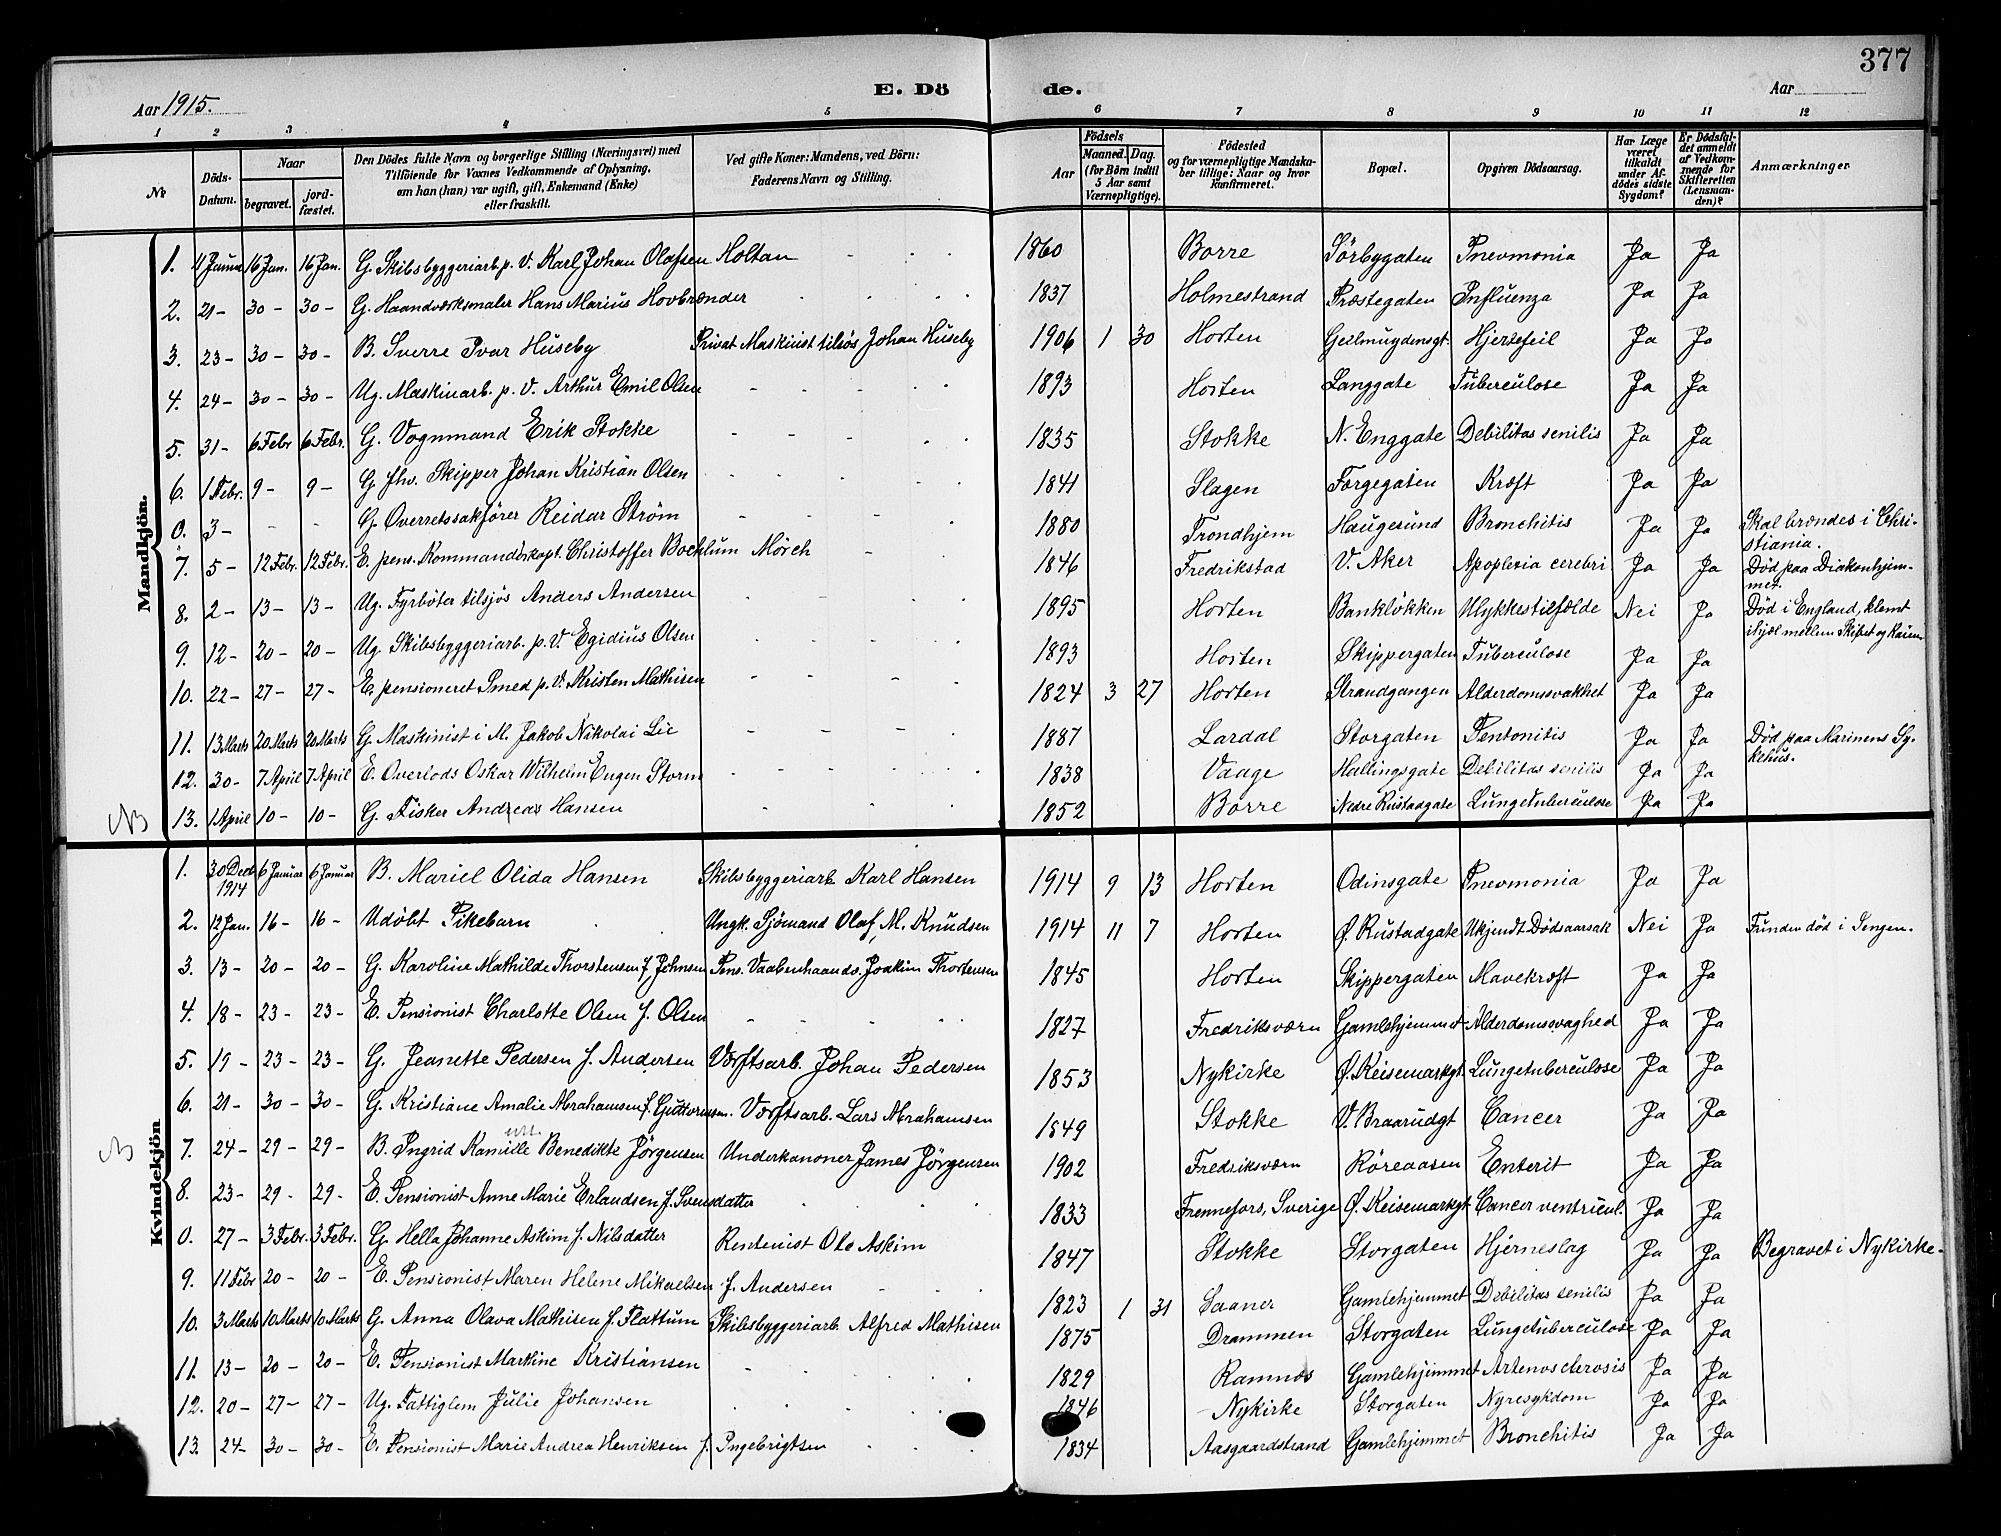 377
Aar 1915.
E. Dö
de.
Aar
1 2 3 4 5 6 7 8 9 10 11 12
No
Döds-Datum.
Naar
begravet.
jord-fæstet.
Den Dödes fulde Navn og borgerlige Stilling (Næringsvei) med
Tilföiende for Voxnes Vedkommende af Oplysning,
om han (hun) var ugift, gift, Enkemand (Enke)
eller fraskilt.
Ved gifte Koner: Mandens, ved Börn:
Faderens Navn og Stilling.
Födsels
Aar
Maaned. Dag.
(for Börn indtil
5 Aar samt
Værnepligtige).
Födested
og for værnepligtige Mandska-
ber tillige: Naar og hvor
konfirmeret.
Bopæl.
Opgiven Dödsaarsag.
Har Læge
været
tilkaldt
under Af-
dödes sidste
Sygdom?
Er Dödsfal-
det anmeldt
af Vedkom-
mende for
Skifteretten
(Lensman-
den)?
Anmærkninger
Mandkjön.
1. 11 Januar 16 Jan. 16 Jan. G. Skibsbyggeriarb. p. V. Karl Johan Olafsen Holtan 1860 Borre Sörbygaten Pnevmonia Ja Ja
2. 21 - 30 - 30 - G. Haandværksmaler Hans Marius Hovbrænder 1837 Holmestrand Præstegaten Influenza Ja Ja
3. 23 - 30 - 30 - B. Sverre Ivar Huseby Privat Maskinist tilsös Johan Huseby 1906 1 30 Horten Geelmuydensgt. Hjertefeil Ja Ja
4. 24 - 30 - 30 - Ug. Maskinarb. p. V. Arthur Emil Olsen 1893 Horten Langgate Tuberculose Ja Ja
5. 31 - 6 Febr 6 Febr. G. Vognmand Erik Stokke 1835 Stokke N. Enggate Debilitas senilis Ja Ja
6. 1 Febr. 9 - 9 - G. fhv. Skipper Johan Kristian Olsen 1841 Slagen Færgegaten Kræft Ja Ja
0. 3 - - - G. Overretssakförer Reidar Ström 1880 Trondhjem Haugesund Bronchitis Ja Ja Skal brændes i Chri-
stiania.
7. 5 - 12 Febr. 12 Febr. E. pens. Kommandörkapt. Christoffer Bocklum Mörch 1846 Fredrikstad V. Aker Apoplexia cerebri Ja Ja Död paa Diakonhjem-
met.
8. 2 - 13 - 13 - Ug. Fyrböter tilsjös Anders Andersen 1895 Horten Banklökken Ulykkestilfælde Nei Ja Död i England, klemt
ihjæl mellem Skibet og Kaien.
9. 12 - 20 - 20 - Ug. Skibsbyggeriarb. p. V. Egidius Olsen 1893 Horten Skippergaten Tuberculose Ja Ja
10. 22 - 27 - 27 - E. pensioneret Smed p. V. Kristen Mathisen 1824 3 27 Horten Strandgangen Alderdomssvakhet Ja Ja
11. 13 Marts 20 Marts 20 Marts G. Maskinist i M. Jakob Nikolai Lie 1887 Lardal Storgaten Peritonitis Ja Ja Död paa Marinens Sy-
kehus.
12. 30 - 7 April 7 April E. Overlods Oskar Wilhelm Eugen Storm 1838 Vaage Hallingsgate Debilitas senilis Ja Ja
NB 13. 1 April 10 - 10 - G. Fisker Andreas Hansen 1852 Borre Nedre Rustadgate Lungetuberculose Ja Ja
Kvindekjön
1. 30 Decb 1914 6 Januar 6 Januar B. Mariel Olida Hansen Skibsbyggeriarb. Karl Hansen 1914 9 13 Horten Odinsgate Pnevmonia Ja Ja
2. 12 Jan. 16 - 16 - Udöbt Pikebarn Ungk. Sjömand Olaf M. Knudsen 1914 11 7 Horten Ø. Rustadgate Ukjendt Dödsaarsak Nei Ja Funden död i Sengen.
3. 13 - 20 - 20 - G. Karoline Mathilde Thorstensen f. Johnsen Pens. Vaabenhaandv. Joakim Thortensen 1845 Horten Skippergaten Mavekræft Ja Ja
4. 18 - 23 - 23 - E. Pensionist Charlotte Olsen f. Olsen 1827 Fredriksværn Gamlehjemmet Alderdomssvaghed Ja Ja
5. 19 - 23 - 23 - G. Jeanette Pedersen f. Andersen Værftsarb. Johan Pedersen 1853 Nykirke Ø. Keisemarkgt Lungetuberculose Ja Ja
6. 21 - 30 - 30 - G. Kristiane Amalie Abrahamsen f. Guttormsen. Værftsarb. Lars Abrahamsen 1849 Stokke V. Braarudgt Cancer Ja Ja
7. 24 - 29 - 29 - B. Ingrid Kamille Benedikte Jörgensen Underkanoner James Jörgensen 1902 Fredriksværn Röreaasen Enterit Ja Ja
8. 23 - 29 - 29 - E. Pensionist Anne Marie Erlandsen f. Svensdatter 1833 Frennefors, Sverige Ø. Keisemarkgt Cancer ventricul. Ja Ja
0. 27 - 3 Febr. 3 Febr. G. Hella Johanne Askim f. Nilsdatter Rentenist Ole Askim 1847 Stokke Storgaten Hjerneslag Ja Ja Begravet i Nykirke.
9. 11 Febr 20 - 20 - E. Pensionist Maren Helene Mikaelsen f. Andersen 1823 1 31 Saaner Gamlehjemmet Debilitas senilis Ja Ja
10. 3 Marts 10 Marts 10 Marts G. Anna Olava Mathisen f. Flattum Skibsbyggeriarb. Alfred Mathisen 1875 Drammen Storgaten Lungetuberculose Ja Ja
11. 13 - 20 - 20 - E. Pensionist Martine Kristiansen 1829 Ramnæs Gamlehjemmet Arteriosclerosis Ja Ja
12. 20 - 27 - 27 - Ug. Fattiglem Julie Johansen 1846 Nykirke Storgaten Nyresykdom Ja Ja
13. 24 - 30 - 30 - E. Pensionist Marie Andrea Henriksen f. Ingebrigtsen 1834 Aasgaardstrand Gamlehjemmet Bronchitis Ja Ja